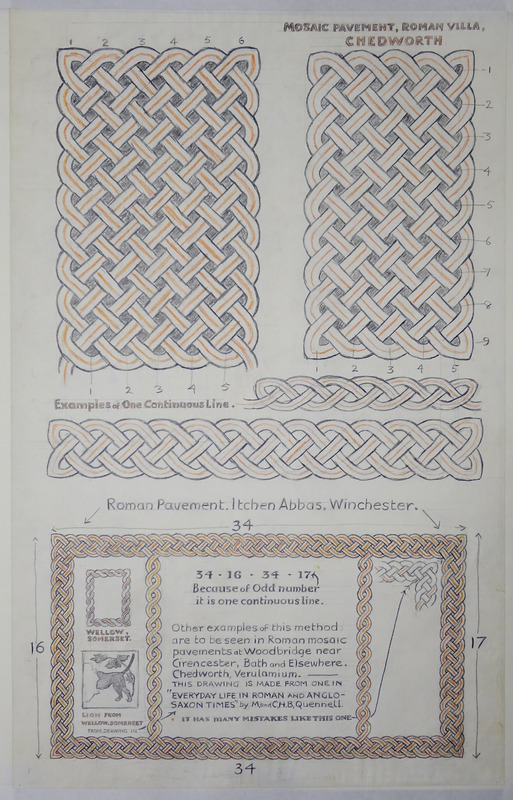 MOSAIC PAVEMENT, ROMAN VILLA,
CHEDWORTH
1 2 3 4 5 6
1
2
3
4
5
6
7
8
9
1 2 3 4 5
1 2 3 4 5
Examples of One Continuous Line.
Roman Pavement. Itchen Abbas, Winchester.
34
16
17
34 · 16 · 34 · 17
Because of Odd number
it is one continuous line.
WELLOW,
SOMERSET.
Other examples of this method
are to be seen in Roman mosaic
pavements at Woodbridge near
Cirencester, Bath and Elsewhere.
Chedworth, Verulamium.
THIS DRAWING IS MADE FROM ONE IN
"EVERYDAY LIFE IN ROMAN AND ANGLO-
SAXON TIMES" by M and C.H.B. Quennell.
IT HAS MANY MISTAKES LIKE THIS ONE
LION FROM
WELLOW, SOMERSET
FROM DRAWING IN
34